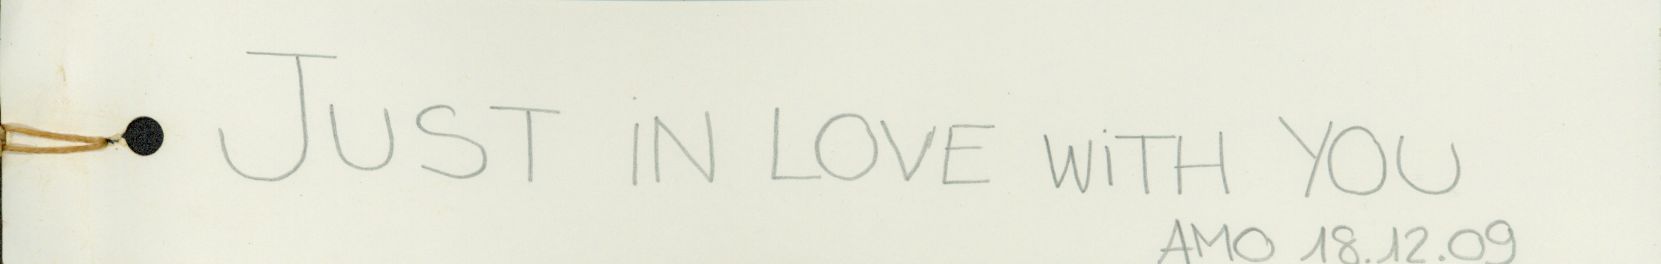 JUST iN LOVE WiTH YOU
AMO 18.12.09